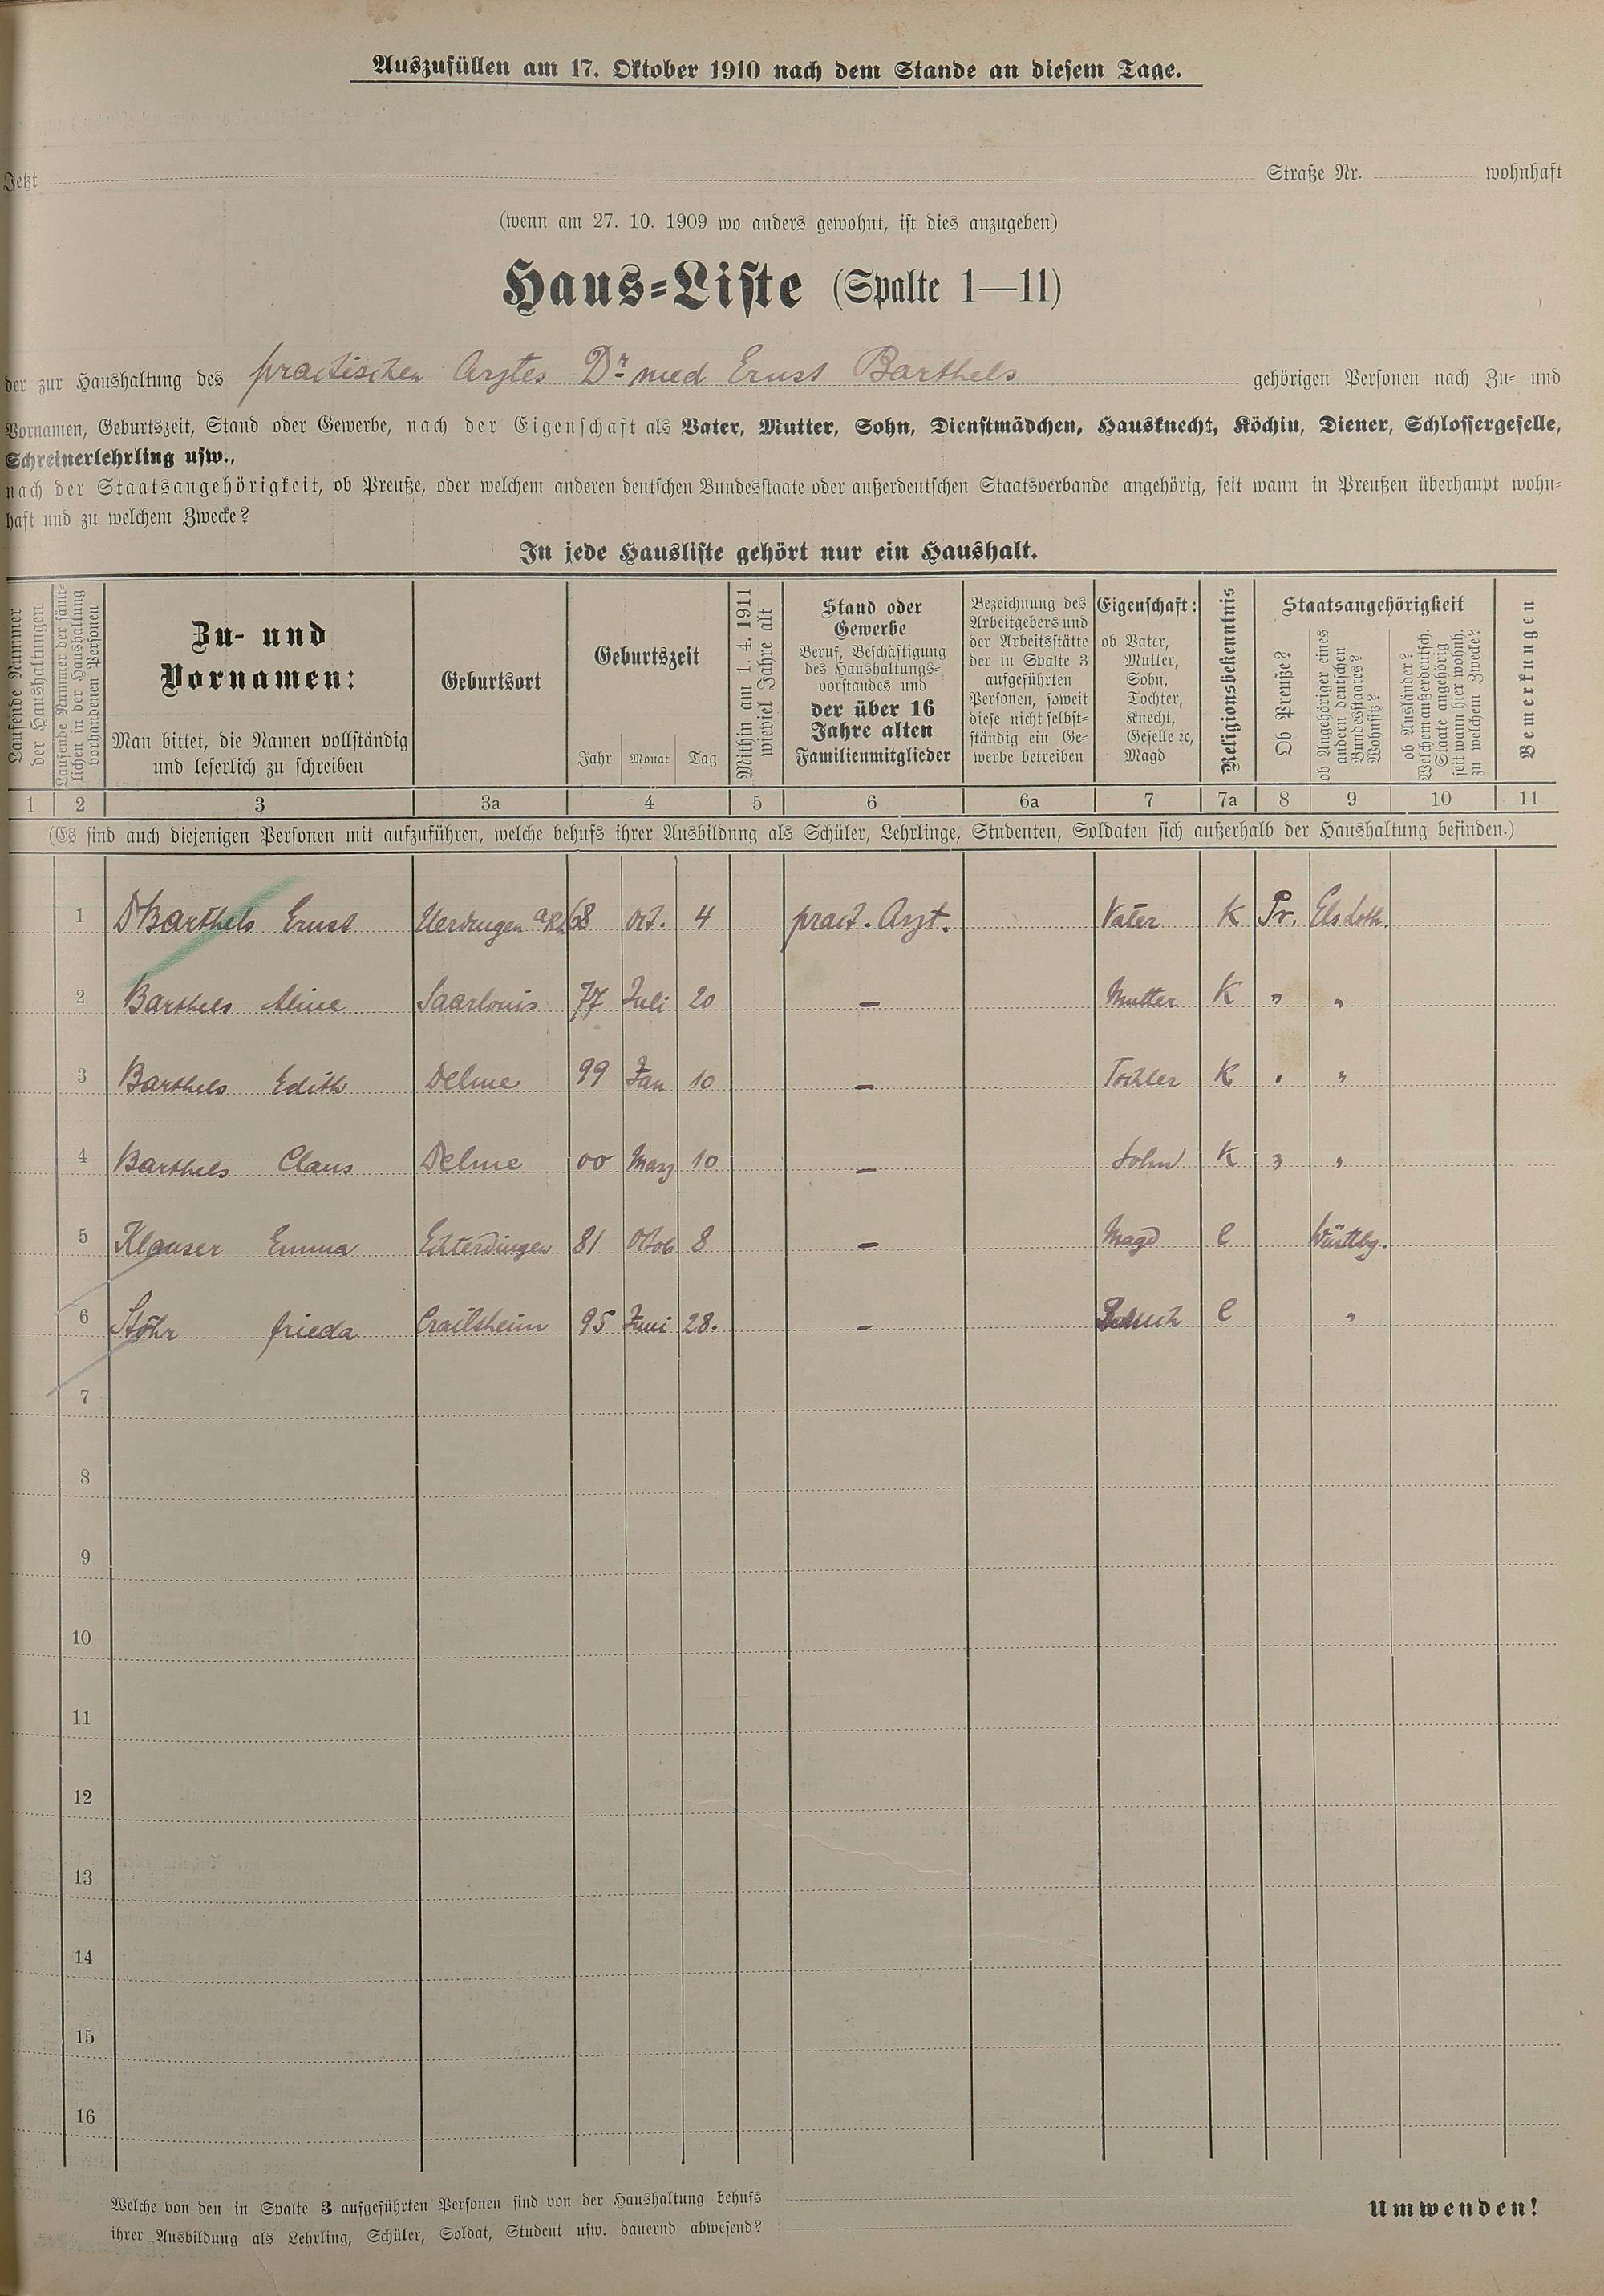 Auszufüllen am 17. Oktober 1910 nach dem Stande an diesem Tage.
Jetzt Straße Nr. wohnhaft
(wenn am 27. 10. 1909 wo anders gewohnt, ist dies anzugeben)
Haus-Liste (Spalte 1—11)
der zur Haushaltung des practischen Arztes Dr med Ernst Barthels gehörigen Personen nach Zu- und
Vornamen, Geburtszeit, Stand oder Gewerbe, nach der Eigenschaft als Vater, Mutter, Sohn, Dienstmädchen, Hausknecht, Köchin, Diener, Schlossergeselle,
Schreinerlehrling usw.,
nach der Staatsangehörigkeit, ob Preuße, oder welchem anderen deutschen Bundesstaate oder außerdeutschen Staatsverbande angehörig, seit wann in Preußen überhaupt wohn-
haft und zu welchem Zwecke?
In jede Hausliste gehört nur ein Haushalt.
Laufende Nummer
der Haushaltungen
Laufende Nummer der sämt-
lichen in der Haushaltung
vorhandenen Personen
Zu- und
Vornamen:
Man bittet, die Namen vollständig
und leserlich zu schreiben
Geburtsort
Geburtszeit
Jahr Monat Tag
Mithin am 1. 4. 1911
wieviel Jahre alt
Stand oder
Gewerbe
Beruf, Beschäftigung
des Haushaltungs-
vorstandes und
der über 16
Jahre alten
Familienmitglieder
Bezeichnung des
Arbeitgebers und
der Arbeitsstätte
der in Spalte 3
aufgeführten
Personen, soweit
diese nicht selbst-
ständig ein Ge-
werbe betreiben
Eigenschaft:
ob Vater,
Mutter,
Sohn,
Tochter,
Knecht,
Geselle ꝛc,
Magd
Religionsbekenntnis
Staatsangehörigkeit
Ob Preuße?
ob Angehöriger eines
andern deutschen
Bundesstaates?
Wohnsitz?
ob Ausländer?
Welchem außerdeutsch.
Staate angehörig
seit wann hier wohnh.
zu welchem Zwecke?
Bemerkungen
1 2 3 3a 4 5 6 6a 7 7a 8 9 10 11
(Es sind auch diejenigen Personen mit aufzuführen, welche behufs ihrer Ausbildung als Schüler, Lehrlinge, Studenten, Soldaten sich außerhalb der Haushaltung befinden.)
1 Dr Barthels Ernst Uerdingen a/Rh 68 Oct. 4 pract. Arzt. Vater K Pr. Els Loth.
2 Barthels Aline Saarlouis 77 Juli 20 — Mutter K " "
3 Barthels Edith Delme 99 Jan 10 — Tochter K " "
4 Barthels Claus Delme 00 Marz 10 — Sohn K " "
5 Klauser Emma Echterdingen 81 Octob 8 — Magd e Württbg.
6 Stöhr Frieda Crailsheim 95 Juni 28. — e "
7
8
9
10
11
12
13
14
15
16
Welche von den in Spalte 3 aufgeführten Personen sind von der Haushaltung behufs
ihrer Ausbildung als Lehrling, Schüler, Soldat, Student usw. dauernd abwesend?
Umwenden!